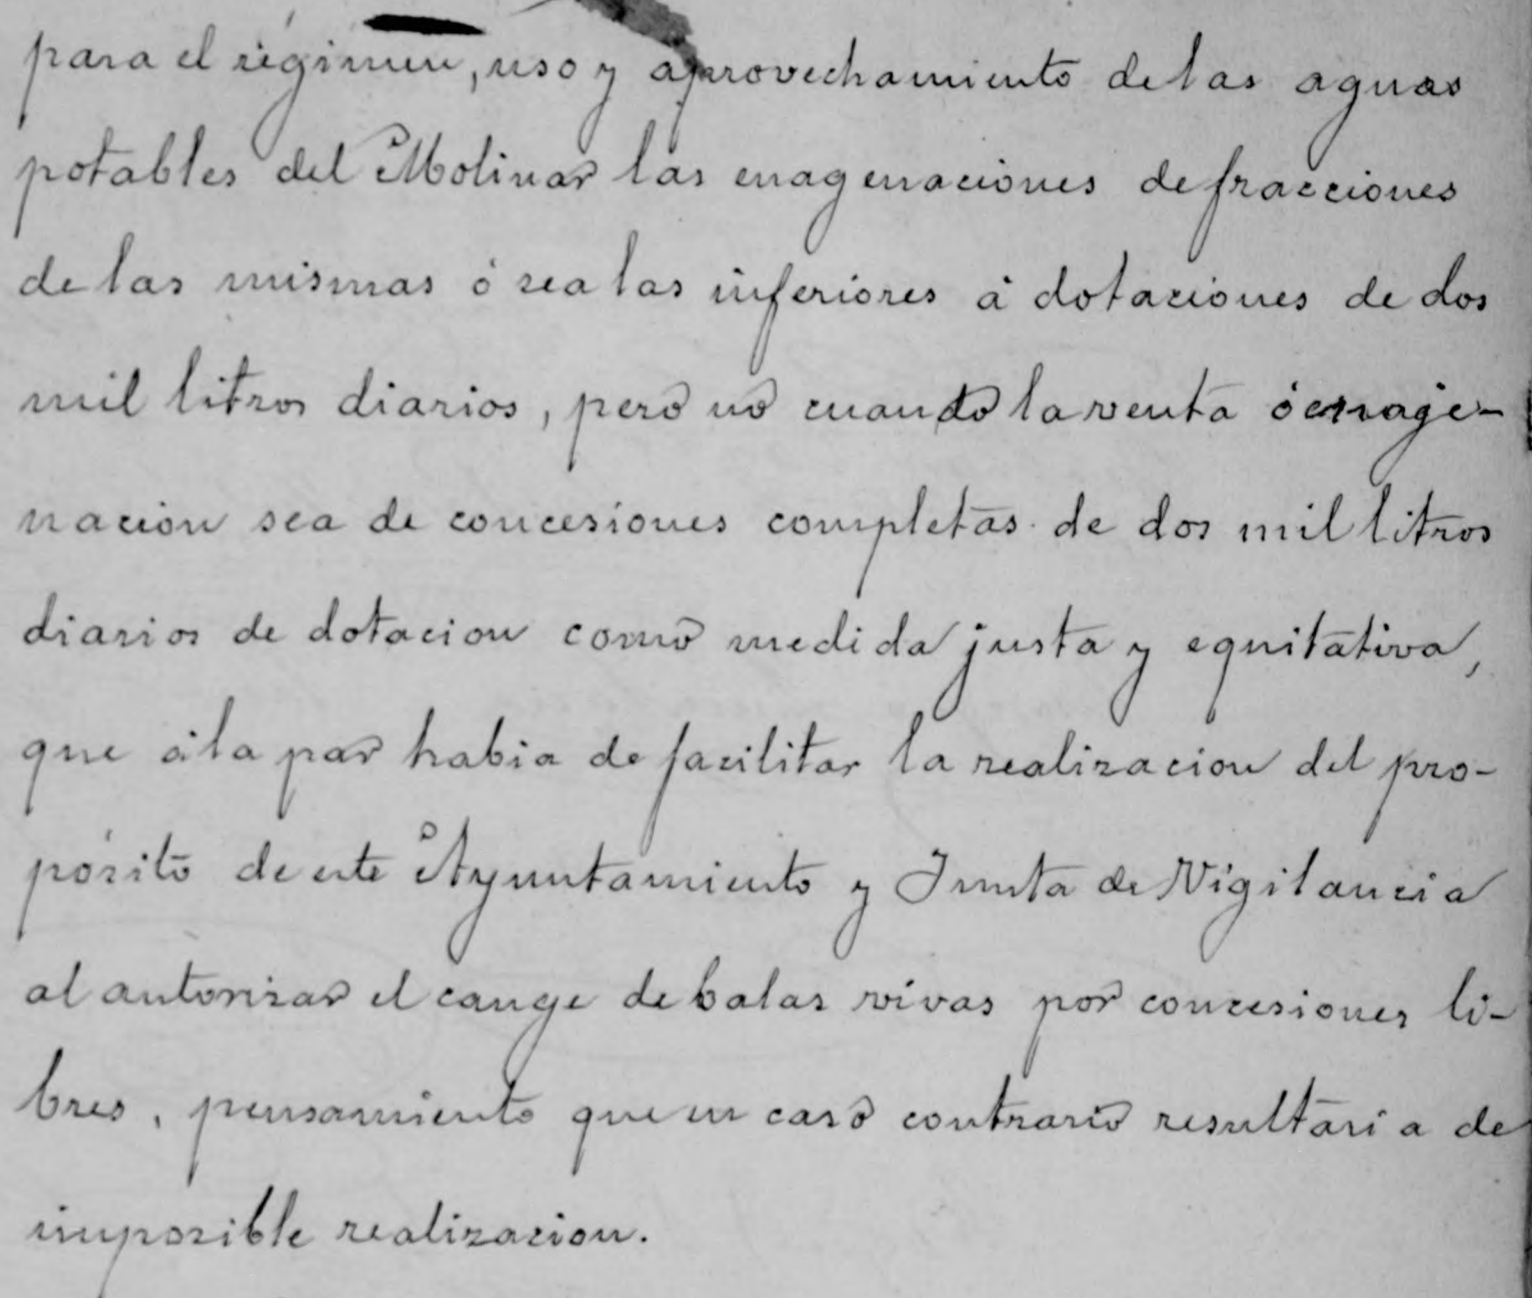 para el régimen, uso y aprovechamiento de las aguas
potables del Molinar las enagenaciones de fracciones
de las mismas ó sea las inferiores á dotaciones de dos
mil litros diarios, pero no cuando la venta ó enage-
nacion sea de concesiones completas de dos mil litros
diarios de dotacion como medida justa y equitativa,
que á la par habia de facilitar la realizacion del pro-
pósito de este Ayuntamiento y Junta de Vigilancia
al autorizar el cange de balas vivas por concesiones li-
bres, pensamiento que en caso contrario resultaria de
imposible realizacion.